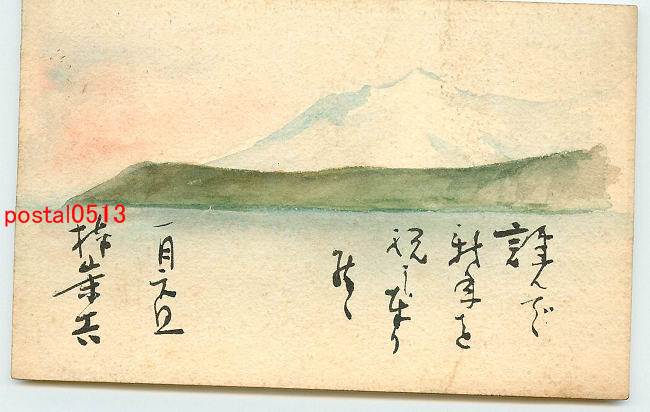 謹んで
新年を
祝し奉り
候
一月元旦
postal0513